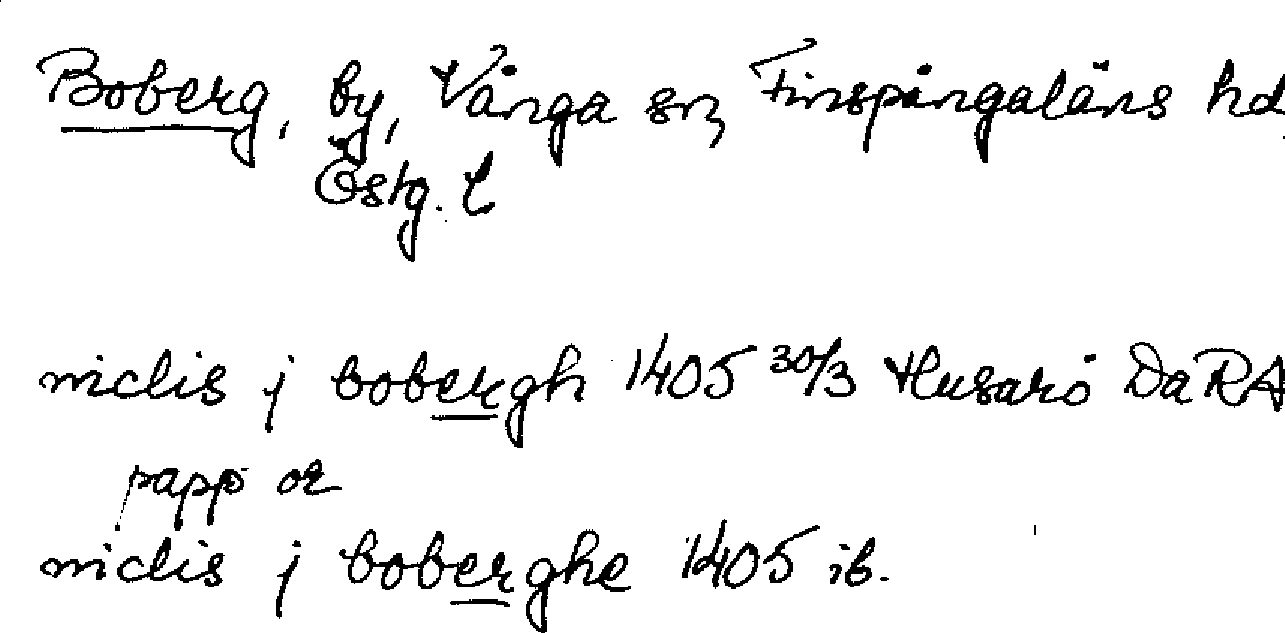 Boberg, by, Vånga sn, Finspångaläns hd
Östg. l
niclis j bobergh 1405 30/3 Husarö Da RA
papp or
niclis jboberghe 1405 ib.